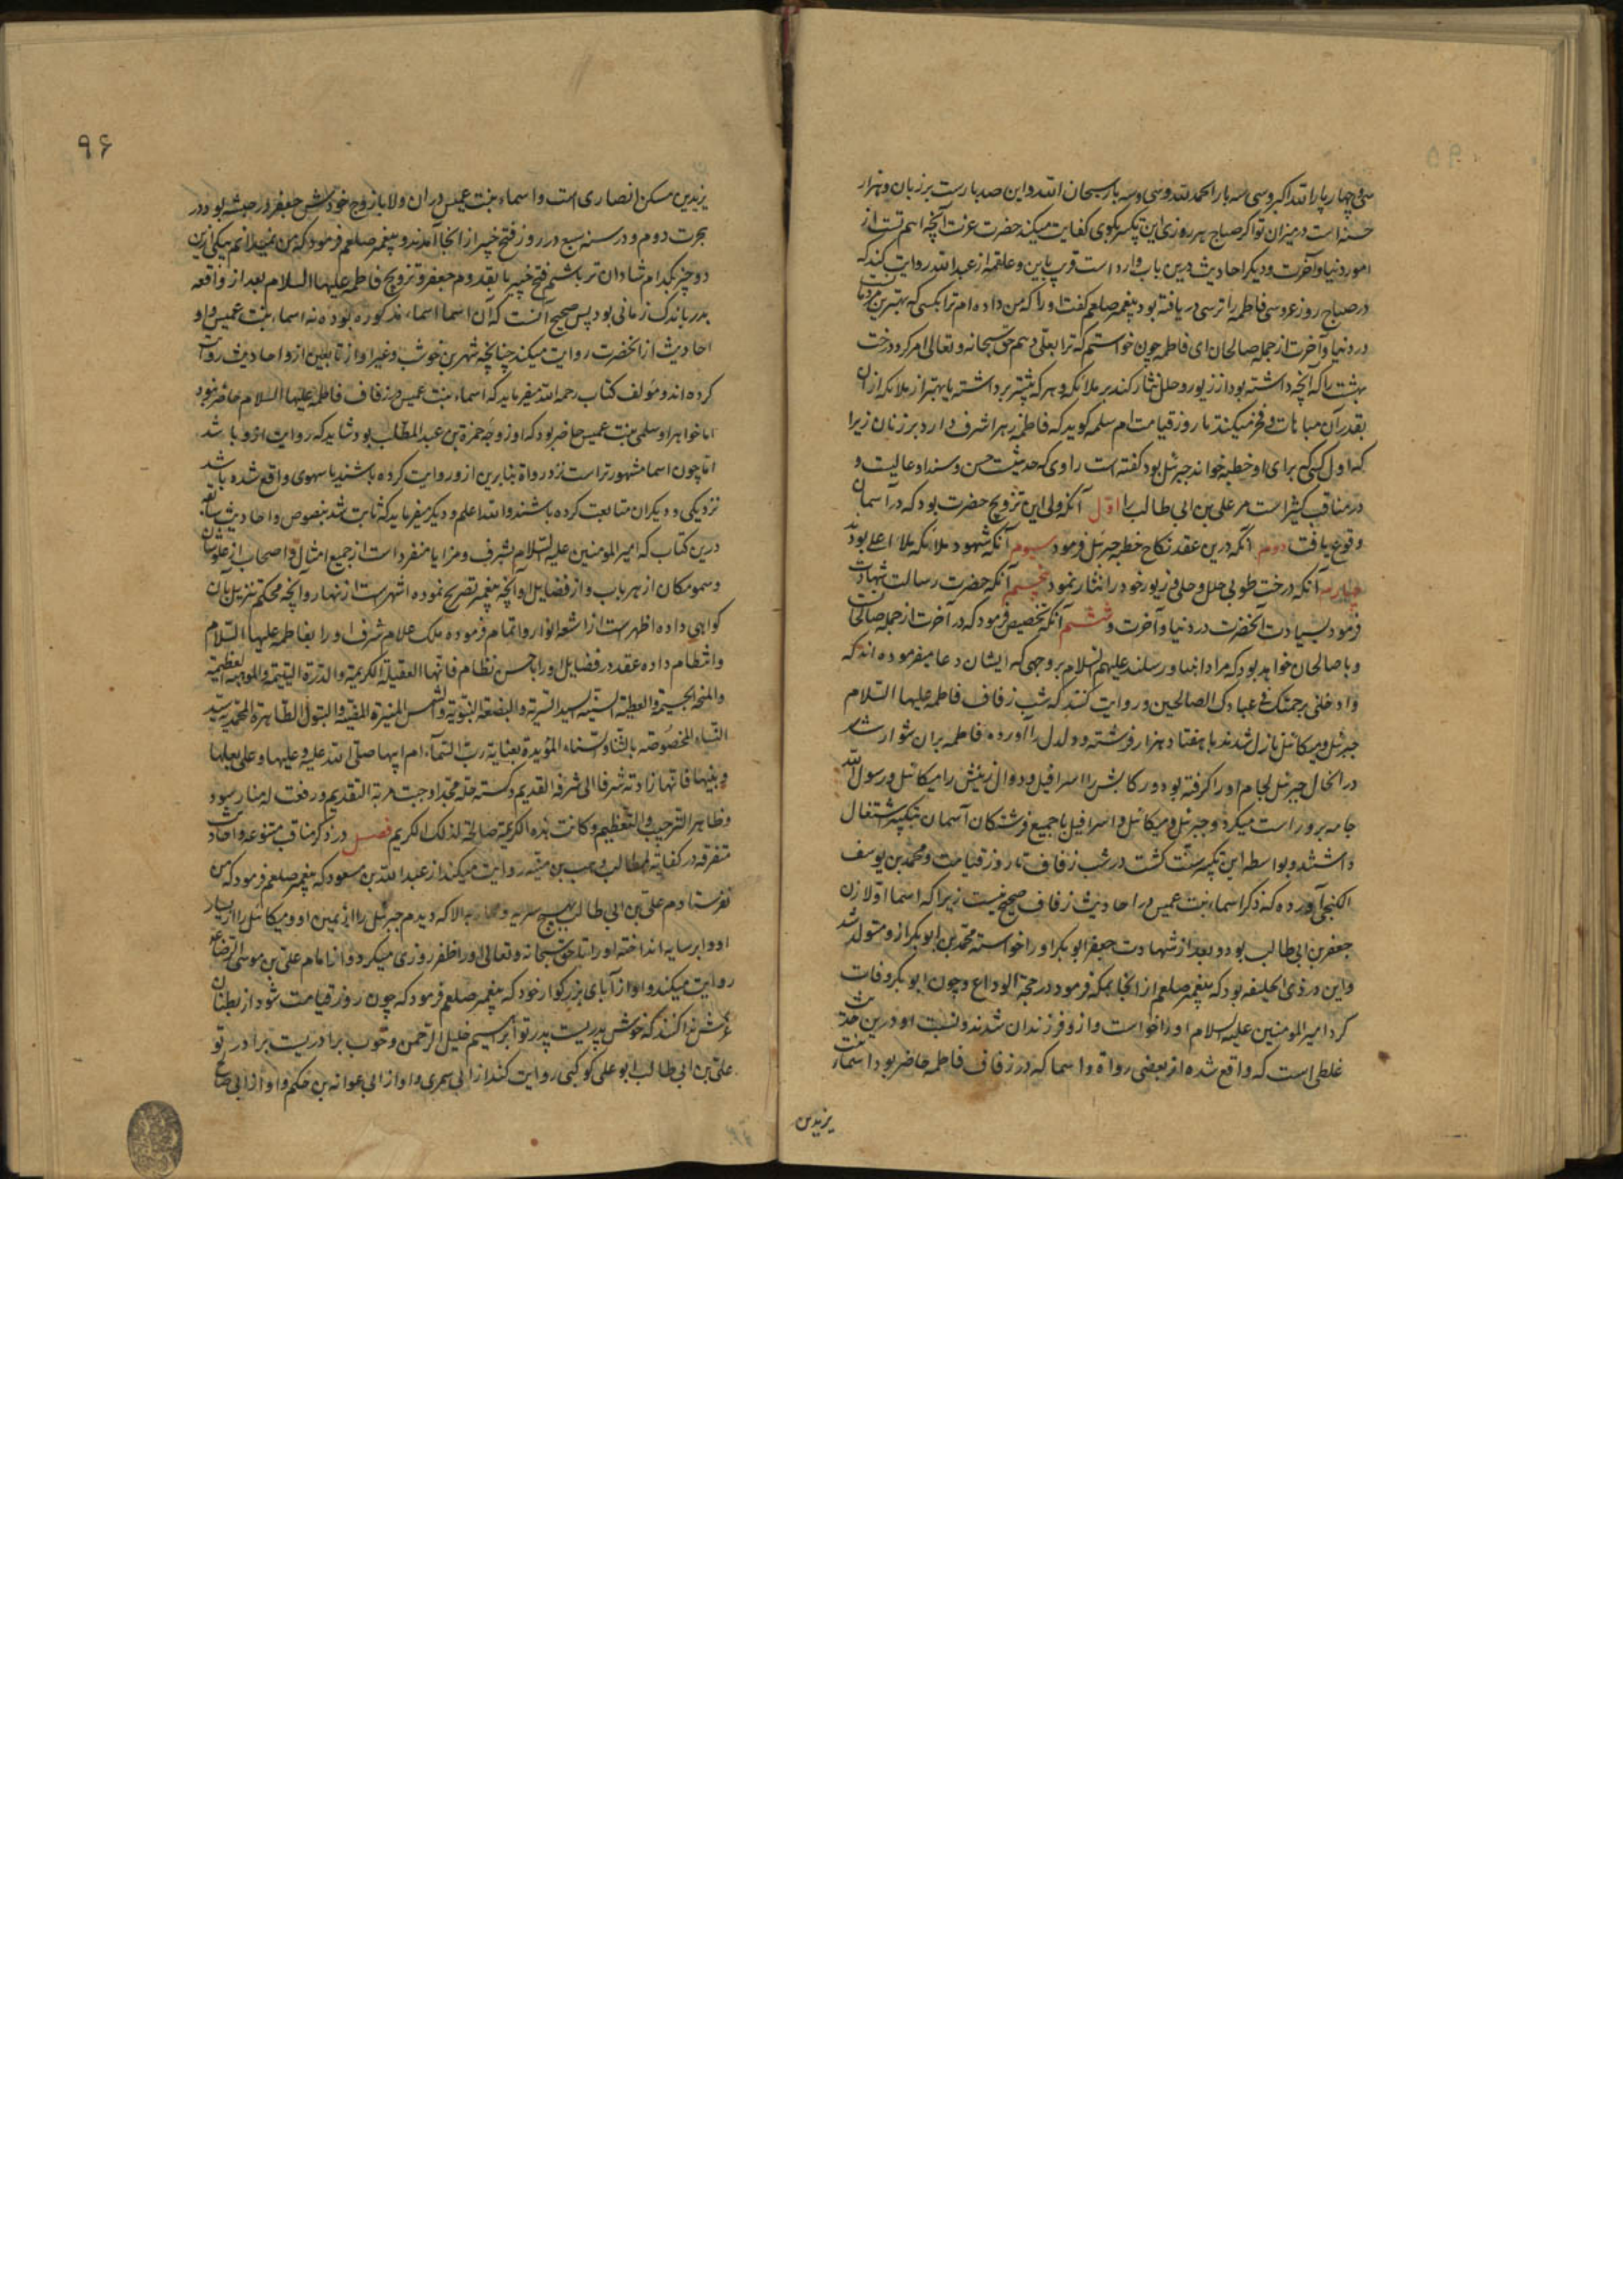 سی و چهار بار الله اکبر و سی و سه بار الحمد لله و سی و سه بار سبحان الله و این صد بارست بر زبان و هزار
حسنه است در میزان تو اگر صباح هر روزی این تکبیر بکوی کفایت میکند حضرت عزت آنچه اهم تست از
امور دنیا و آخرت و دیکر احادیث درین باب وارد است قریب باین و علقمه از عبد الله روایت کند که
در صباح روز عروسی فاطمه را ترسی دریافته بود پیغمبر صلعم گفت او را که من داده ام ترا بکسی که بهترین مردمانست
در دنیا و آخرت از جمله صالحان ای فاطمه چون خواستم که ترا بعلی دهم حق سبحانه و تعالی امر کرد درخت
بهشت را که آنچه داشته بود از زیور و حلل نثار کند بر ملائکه و هر که بیشتر برداشته یا بهتر از ملائکه از آن
بقدر آن مباهات و فخر میکنند تا روز قیامت ام سلمه کوید که فاطمه زهرا شرف دارد بر زنان زیرا
که اول کسی که برای او خطبه خواند جبرئیل بود گفته است راوی که حدیثیست حسن و سند او عالیست و
در مناقب کثیر است مر علی بن ابی طالب را اول آنکه ولی این تزویج حضرت بود که در آسمان
وقوع یافت دوم آنکه درین عقد نکاح خطبه جبرئیل فرمود سیوم آنکه شهود ملائکه ملا اعلی بود
چهارم آنکه درخت طوبی حلل و حلی و زیور خود را نثار نمود پنجم آنکه حضرت رسالت شهادت
فرمود بسیادت آنحضرت در دنیا و آخرت و ششم آنکه تخصیص فرمود که در آخرت از جمله صالحان
و با صالحان خواهد بود که مراد انبیا و رسلند علیهم السلام بر وجهی که ایشان دعا میفرموده اند که
و ادخلنی برحمتک فی عبادک الصالحین و روایت کنند که شب زفاف فاطمه علیها السلام
جبرئیل و میکائیل نازل شدند با هفتاد هزار فرشته و دلدل را آورده فاطمه بران سوار شد
در انحال جبرئیل لجام او را کرفته بود و رکابش را اسرافیل و دوال زینش را میکائیل و رسول الله
جامه برو راست میکرد و جبرئیل و میکائیل و اسرافیل با جمیع فرشتکان آسمان بتکبیر اشتغال
داشتند و بواسطه این تکبیر سنت کشت در شب زفاف تا روز قیامت و محمد بن یوسف
الکنجی آورده که ذکر اسماء بنت عمیس در احادیث زفاف صحیح نیست زیرا که اسما اولا زن
جعفر بن ابی طالب بود و بعد از شهادت جعفر ابوبکر او را خواسته محمد بن ابوبکر ازو متولد شد
و این در ذی الحلیفه بود که پیغمبر صلعم از انجا بمکه فرمود در حجة الوداع و چون ابوبکر وفات
کرد امیر المومنین علیه السلام او را خواست و ازو فرزندان شدند و نسبت او درین حدیث
غلطی است که واقع شده از بعضی رواة و اسما که در زفاف فاطمه حاضر بود اسماء بنت
یزید بن
۹۶
یزید بن مسکن انصاری است و اسماء بنت عمیس در ان ولا با زوج خودش جعفر در حبشه بود در
هجرت دوم و در سنه سبع در روز فتح خیبر از انجا آمدند و پیغمبر صلعم فرمود که من نمیدانم بیکی ازین
دو چیز بکدام شادان تر باشم فتح خیبر یا بقدوم جعفر و تزویج فاطمه علیها السلام بعد از واقعه
بدر باندک زمانی بود پس صحیح آنست که آن اسما اسماء مذکوره بوده نه اسماء بنت عمیس و او
احادیث از انحضرت روایت میکند چنانچه شهر بن حوشب و غیر او از تابعین ازو احادیث روایت
کرده اند و مؤلف کتاب رحمه الله میفرماید که اسماء بنت عمیس در زفاف فاطمه علیها السلام حاضر نبود
اما خواهر او سلمی بنت عمیس حاضر بود که او زوجه حمزة بن عبد المطلب بود شاید که روایت ازو باشد
اما چون اسما مشهورتر است نزد رواة بنابرین ازو روایت کرده باشند یا سهوی واقع شده باشد
نزد یکی و دیکران متابعت کرده باشند و الله اعلم و دیکر میفرماید که ثابت شد بنصوص و احادیث سابقه
درین کتاب که امیر المومنین علیه السلام بشرف و مزایا منفرد است از جمیع امثال و اصحاب از علو شان
و سمو مکان از هر باب و از فضایل او آنچه پیغمبر تصریح نموده اشهرست از نهار و آنچه محکم تنزیل بان
کواهی داده اظهرست از اشعه انوار و اتمام فرموده ملک علام شرف او را بفاطمه علیها السلام
و انتظام داده عقد در فضایل او را باحسن نظام فانها العقیلة الکریمة و الدرة الیتیمة و الموهبة العظیمة
و المنحة الجسیمة و العطیة السنیة السیدة السریة و البضعة النبویة و الشمس المنیرة المضیئة و البتول الطاهرة المحمدیة سیدة
النساء المخصوصة بالثناء و السناء المؤیدة بعنایة رب السماء ام ابیها صلی الله علیه و علیها و علی بعلها
و بنیها فانها زادته شرفا الی شرفه القدیم و کسته حلة مجد اوجبت مزیة التقدیم و رفعت له منار سؤدد
و ظاهر الترحیب و التعظیم و کانت هذه الکریمة صالحة لذلک الکریم فصل در ذکر مناقب متنوعه و احادیث
متفرقه در کفایة الطالب وهب بن منبه روایت میکند از عبد الله بن مسعود که پیغمبر صلعم فرمود که من
نفرستادم علی بن ابی طالب بهیچ سریه و محاربه الا که دیدم جبرئیل را از یمین او و میکائیل را از یسار
او و ابر سایه انداخته او را تا حق سبحانه و تعالی او را ظفر روزی میکرد و از امام علی بن موسی الرضا ع
روایت میکند و او از آبای بزرکوار خود که پیغمبر صلعم فرمود که چون روز قیامت شود از بطنان
عرش ندا کنند که خوش پدریست پدر تو ابراهیم خلیل الرحمن و خوب برادریست برادر تو
علی بن ابی طالب ابو علی کوکبی روایت کند از ابی سمری و او از ابی عوانه بن حکم و او از ابی صالح